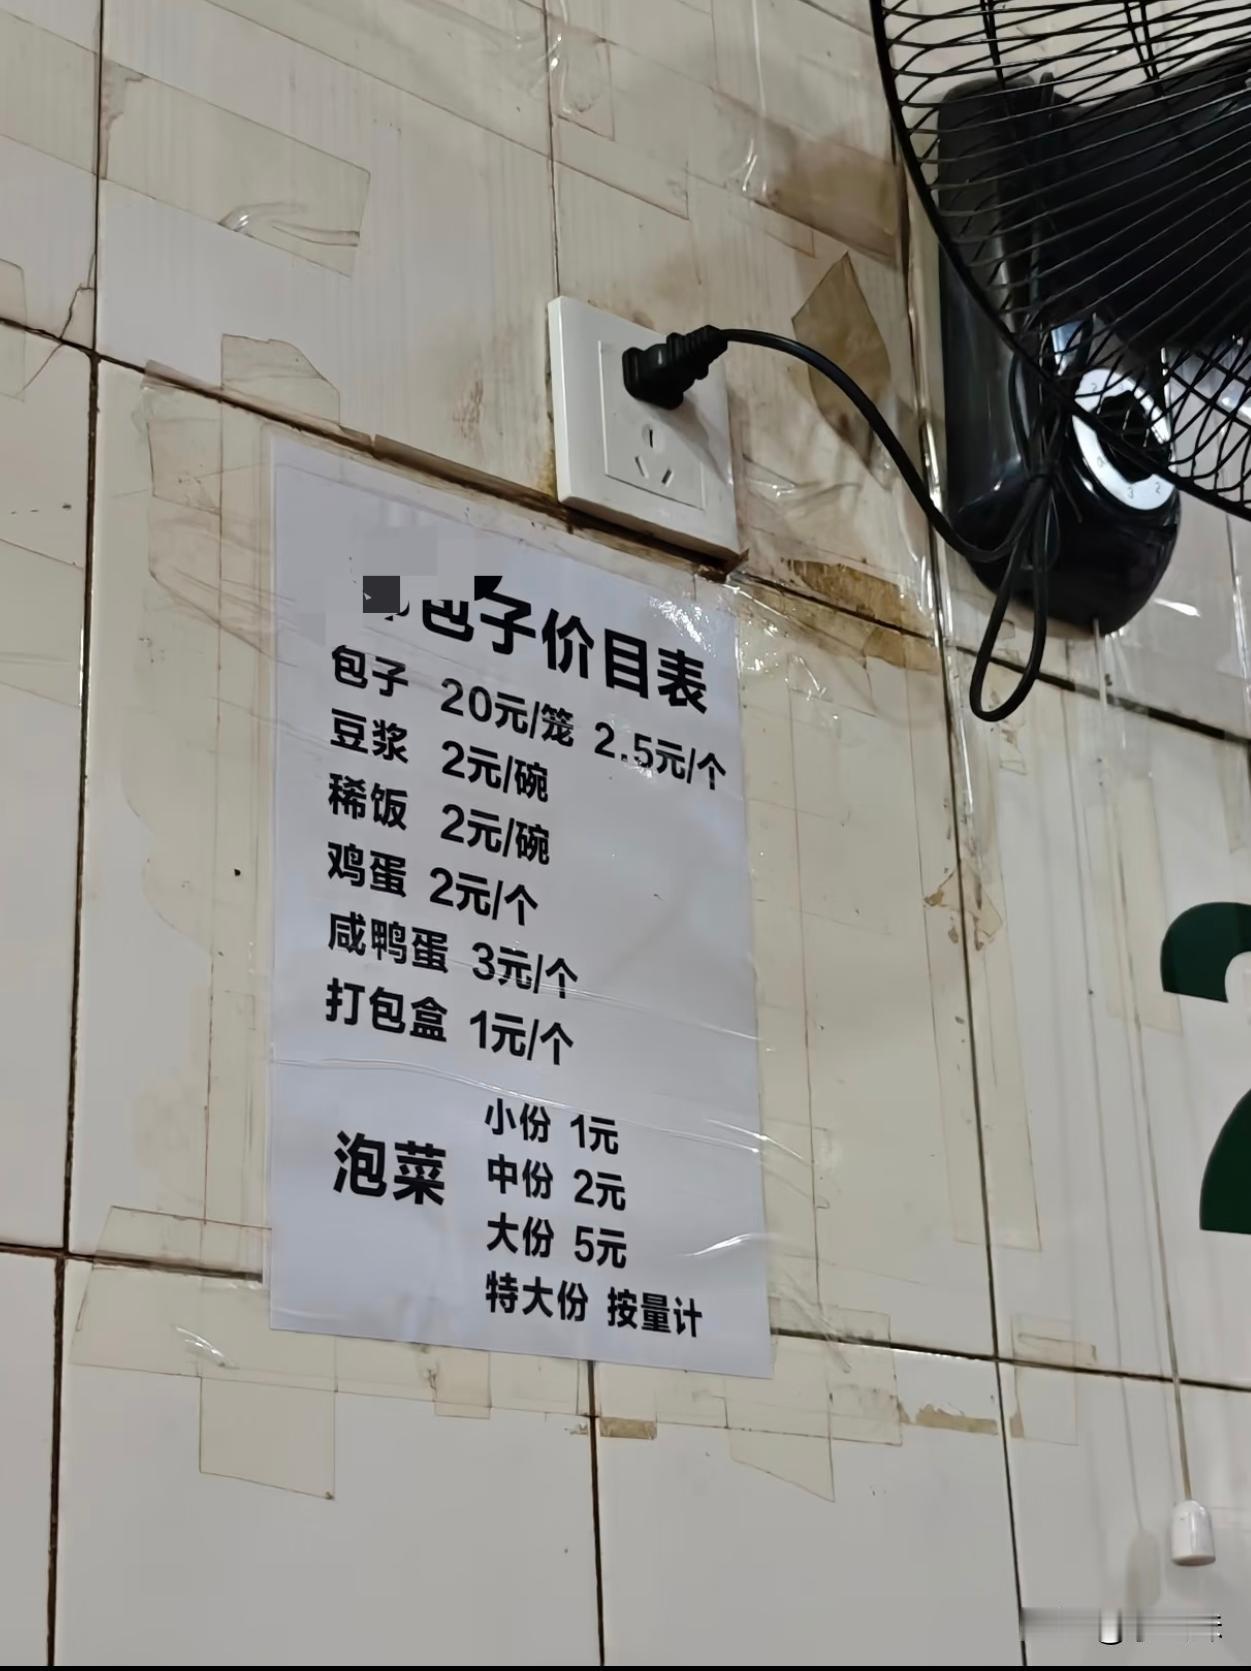 包子价目表
包子 20元/笼 2.5元/个
豆浆 2元/碗
稀饭 2元/碗
鸡蛋 2元/个
咸鸭蛋 3元/个
打包盒 1元/个
泡菜
小份 1元
中份 2元
大份 5元
特大份 按量计